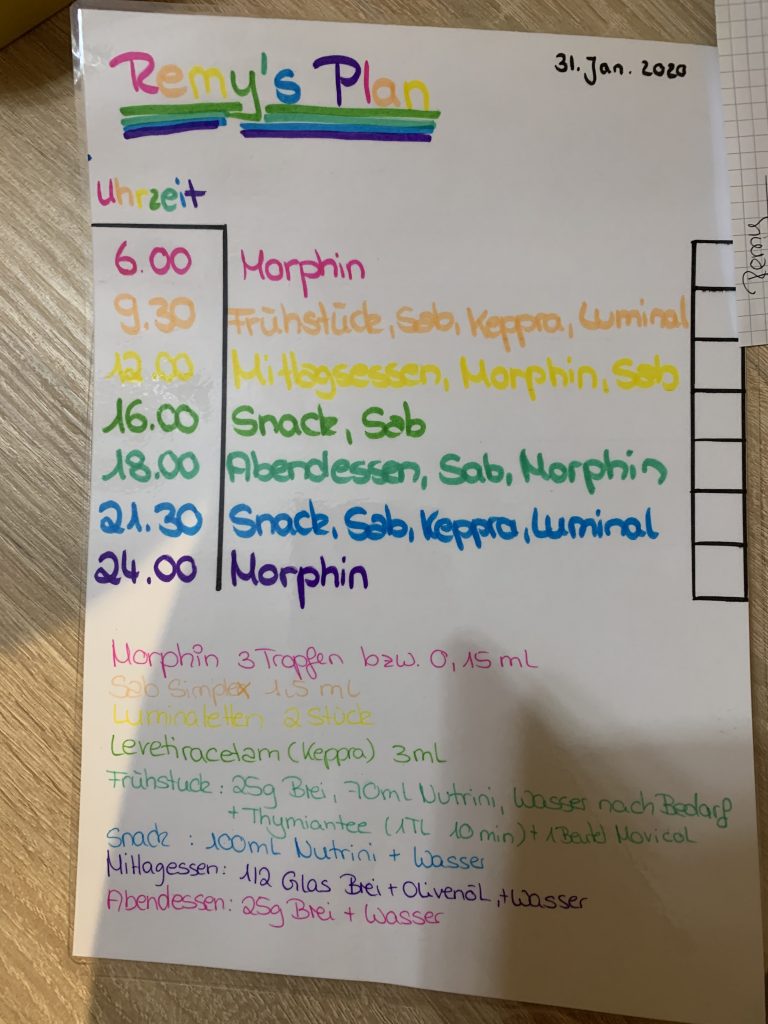 Remy's Plan
31. Jan. 2020
Uhrzeit
6.00 Morphin
9.30 Frühstück, Sab, Keppra, Luminal
12.00 Mittagsessen, Morphin, Sab
16.00 Snack, Sab
18.00 Abendessen, Sab, Morphin
21.30 Snack, Sab, Keppra, Luminal
24.00 Morphin
Morphin 3 Tropfen bzw. 0,15 mL
Sab Simplex 1,5 mL
Luminaletten 2 Stück
Levetiracetam (Keppra) 3mL
Frühstuck: 25g Brei, 70ml Nutrini, Wasser nach Bedarf
+ Thymiantee (1TL 10 min) + 1 Beutel Movicol
Snack : 100ml Nutrini + Wasser
Mittagessen: 1/2 Glas Brei + Olivenöl, + Wasser
Abendessen: 25g Brei + Wasser
Remy